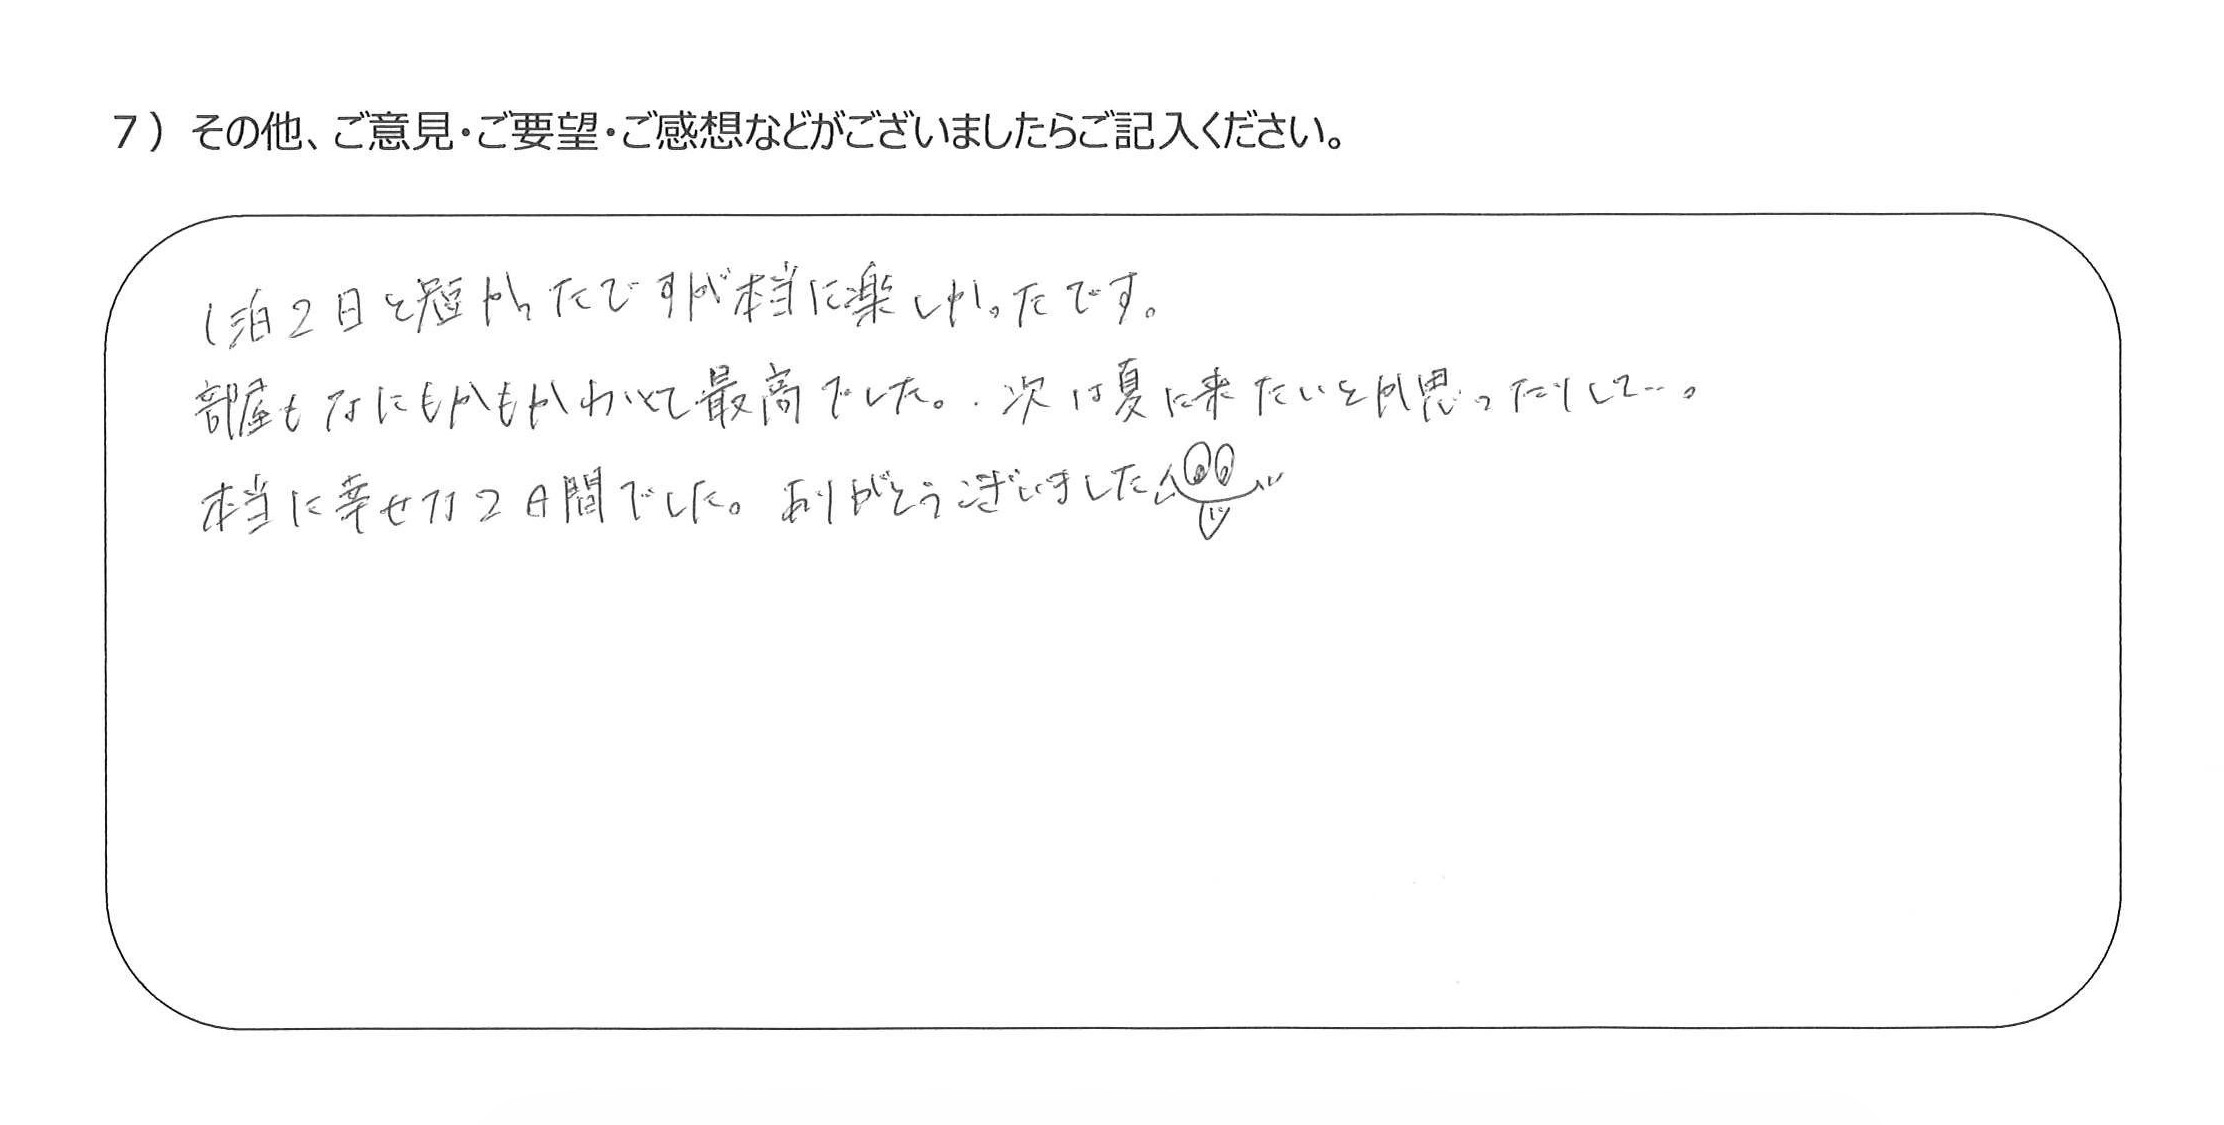 7）その他、ご意見・ご要望・ご感想などがございましたらご記入ください。
1泊2日と短かったですが本当に楽しかったです。
部屋もなにもかもかわいくて最高でした。次は夏に来たいとか思ったりして…。
本当に幸せな2日間でした。ありがとうございました